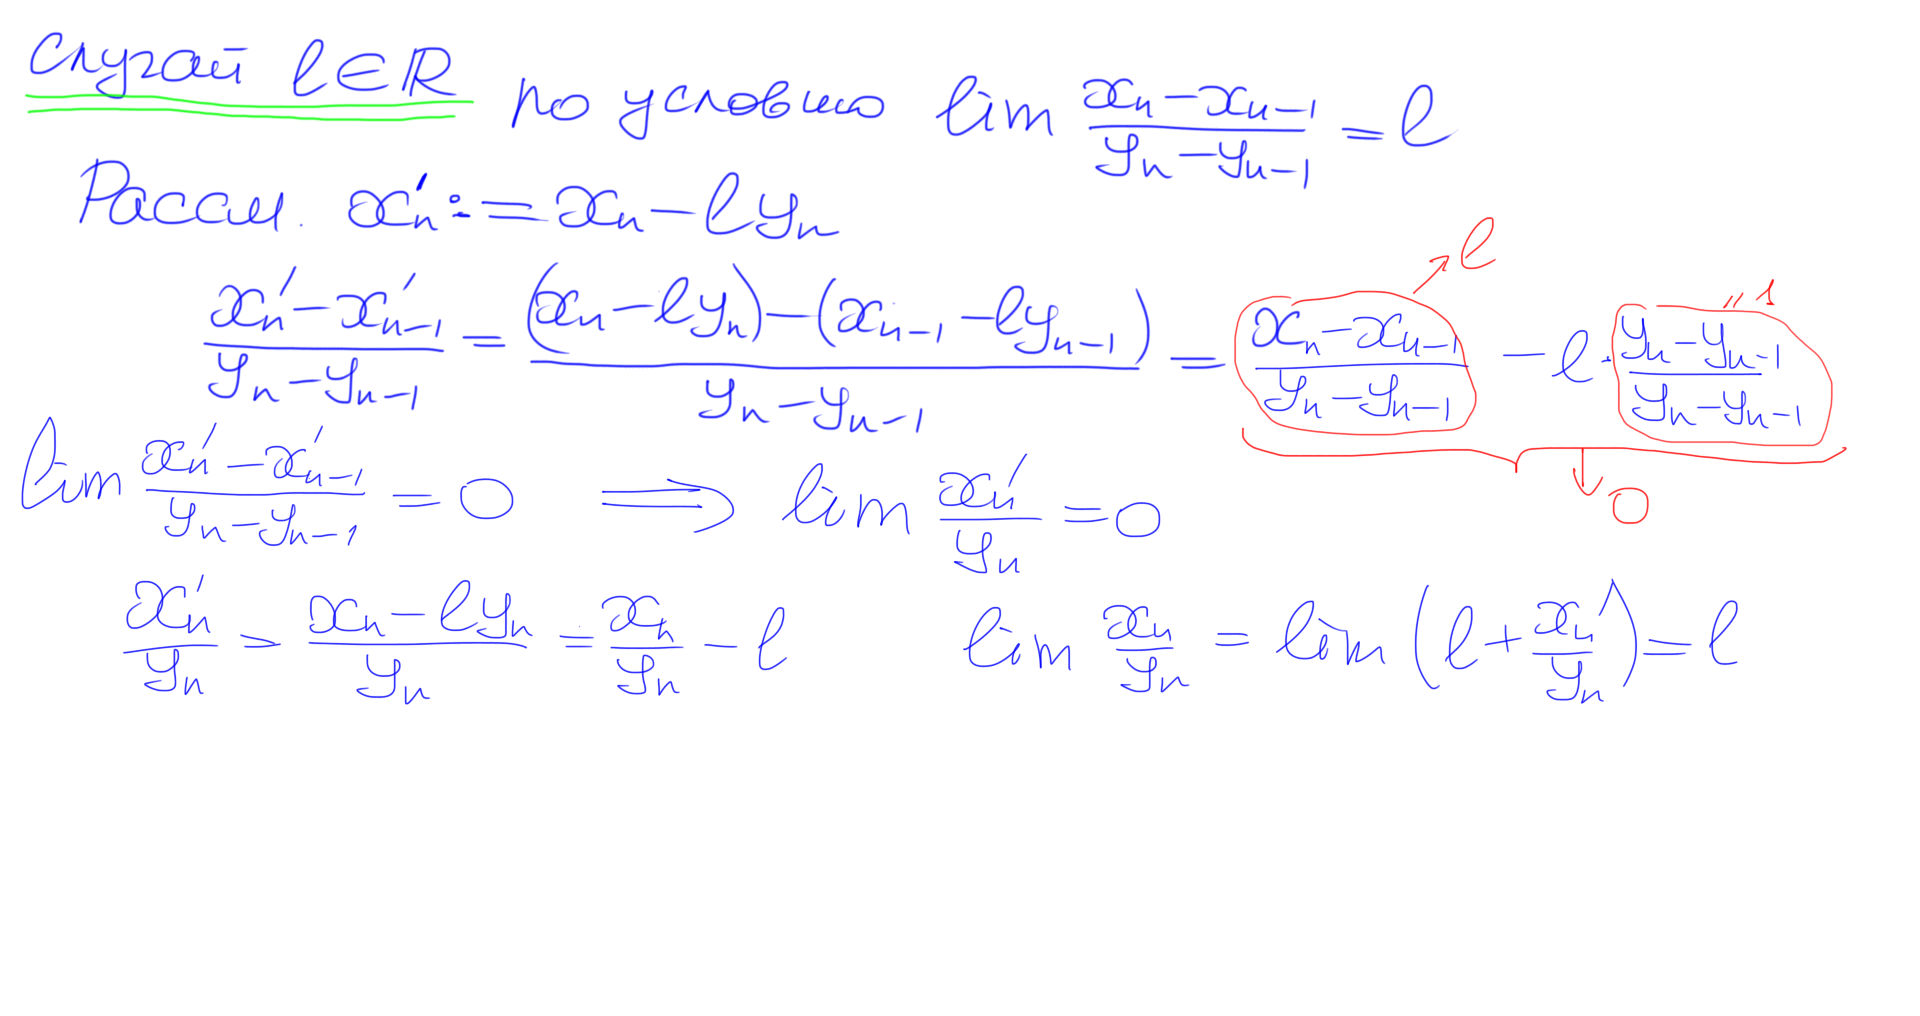 Случай l∈ℝ по условию lim (xₙ−xₙ₋₁)/(yₙ−yₙ₋₁) = l
Рассм. x′ₙ := xₙ − lyₙ
(x′ₙ−x′ₙ₋₁)/(yₙ−yₙ₋₁) = ((xₙ−lyₙ)−(xₙ₋₁−lyₙ₋₁))/(yₙ−yₙ₋₁) = (xₙ−xₙ₋₁)/(yₙ−yₙ₋₁) → l − l·(yₙ−yₙ₋₁)/(yₙ−yₙ₋₁) = 1 → 0
lim (x′ₙ−x′ₙ₋₁)/(yₙ−yₙ₋₁) = 0 ⟹ lim x′ₙ/yₙ = 0
x′ₙ/yₙ = (xₙ−lyₙ)/yₙ = xₙ/yₙ − l lim xₙ/yₙ = lim (l + x′ₙ/yₙ) = l